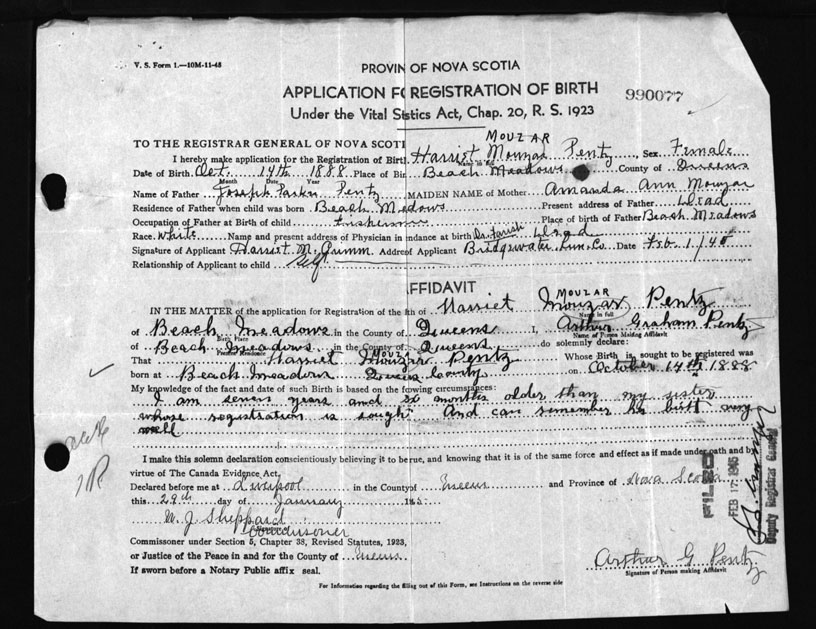 V. S. Form 1.—10M-11-43
PROVIN OF NOVA SCOTIA
APPLICATION FO REGISTRATION OF BIRTH
990077
Under the Vital Statistics Act, Chap. 20, R. S. 1923
TO THE REGISTRAR GENERAL OF NOVA SCOTI
MOUZAR
I hereby make application for the Registration of Birth Harriet Mouzar Pentz, Sex Female
Date of Birth Oct. 14th 1888 Place of Bir Beach Meadows County of Queens
Month Date Year
Name of Father Joseph Parker Pentz MAIDEN NAME of Mother Amanda Ann Mouzar
Residence of Father when child was born Beach Medows Present address of Father Dead
Occupation of Father at Birth of child Fisherman Place of birth of Father Beach Meadows
Race White Name and present address of Physician in endance at birth Dr. Farish Dead
Signature of Applicant Harriet M. Grimm Address of Applicant Bridgewater Lun. Co. Date Feb. 1/45
Relationship of Applicant to child Self
FFIDAVIT
MOUZAR
IN THE MATTER of the application for Registration of the th of Harriet Mouzar Pentz
Name in full
of Beach Meadows in the County of Queens I, Arthur Graham Pentz
Birth Place Name of Person Making Affidavit
of Beach Meadows in the County of Queens do solemnly declare:
Present Residence
MOUZ
That Harriet Mouzar Pentz Whose Birth is sought to be registered was
born at Beach Meadows Queens County on October 14th 1888
My knowledge of the fact and date of such Birth is based on the fowing circumstances:
I am seven years and six months older than my sister
whose registration is sought. And can remember his birth very
well
I make this solemn declaration conscientiously believing it to be rue, and knowing that it is of the same force and effect as if made under oath and by
virtue of The Canada Evidence Act,
Declared before me at Liverpool in the County of Queens and Province of Nova Scotia
this 29th day of January
W. J. Sheppard
Signature of
Commissioner
Commissioner under Section 5, Chapter 38, Revised Statutes, 1923,
or Justice of the Peace in and for the County of Queens
If sworn before a Notary Public affix seal.
Arthur G Pentz
Signature of Person making Affidavit
For Information regarding the filling out of this Form, see Instructions on the reverse side
FILED
FEB 17 1945
Deputy Registrar General